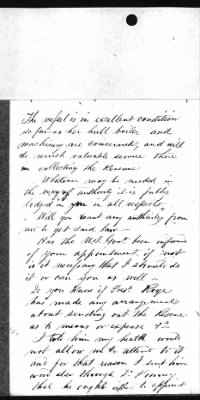 The vessel is in excellent condition
so far as her hull boiler and
machinery are concerned, and will
do much valuable service there
in collecting the Revenue
Whatever may be needed in
the way of authority it is fully
lodged in you in all respects.
Will you want any authority from
me to get said law
Has the U.S. Govt been informed
of your appointment, if not
is it necessary that I should do
it or can you as well
Do you know if Prest. Roye
has made any arrangement
about sending out the
as to means or expense &c
I told him my health would
not allow me to attend to it
and for that reason I sent him
word also through Dr
that he ought either to appoint